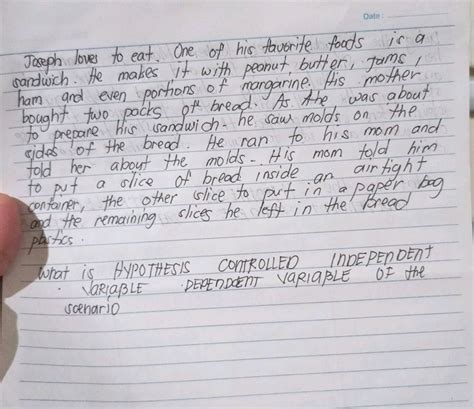 Date:
Joseph loves to eat. One of his favorite foods is a
sandwich. He makes it with peanut butter, jams,
ham and even portions of margarine. His mother
bought two packs of bread. As she was about
to prepare his sandwich he saw molds on the
sides of the bread. He ran to his mom and
told her about the molds. His mom told him
to put a slice of bread inside an airtight
container, the other slice to put in a paper bag
and the remaining slices he left in the bread
plastics.
What is HYPOTHESIS CONTROLLED INDEPENDENT
VARIABLE DEPENDENT VARIABLE OF the
scenario